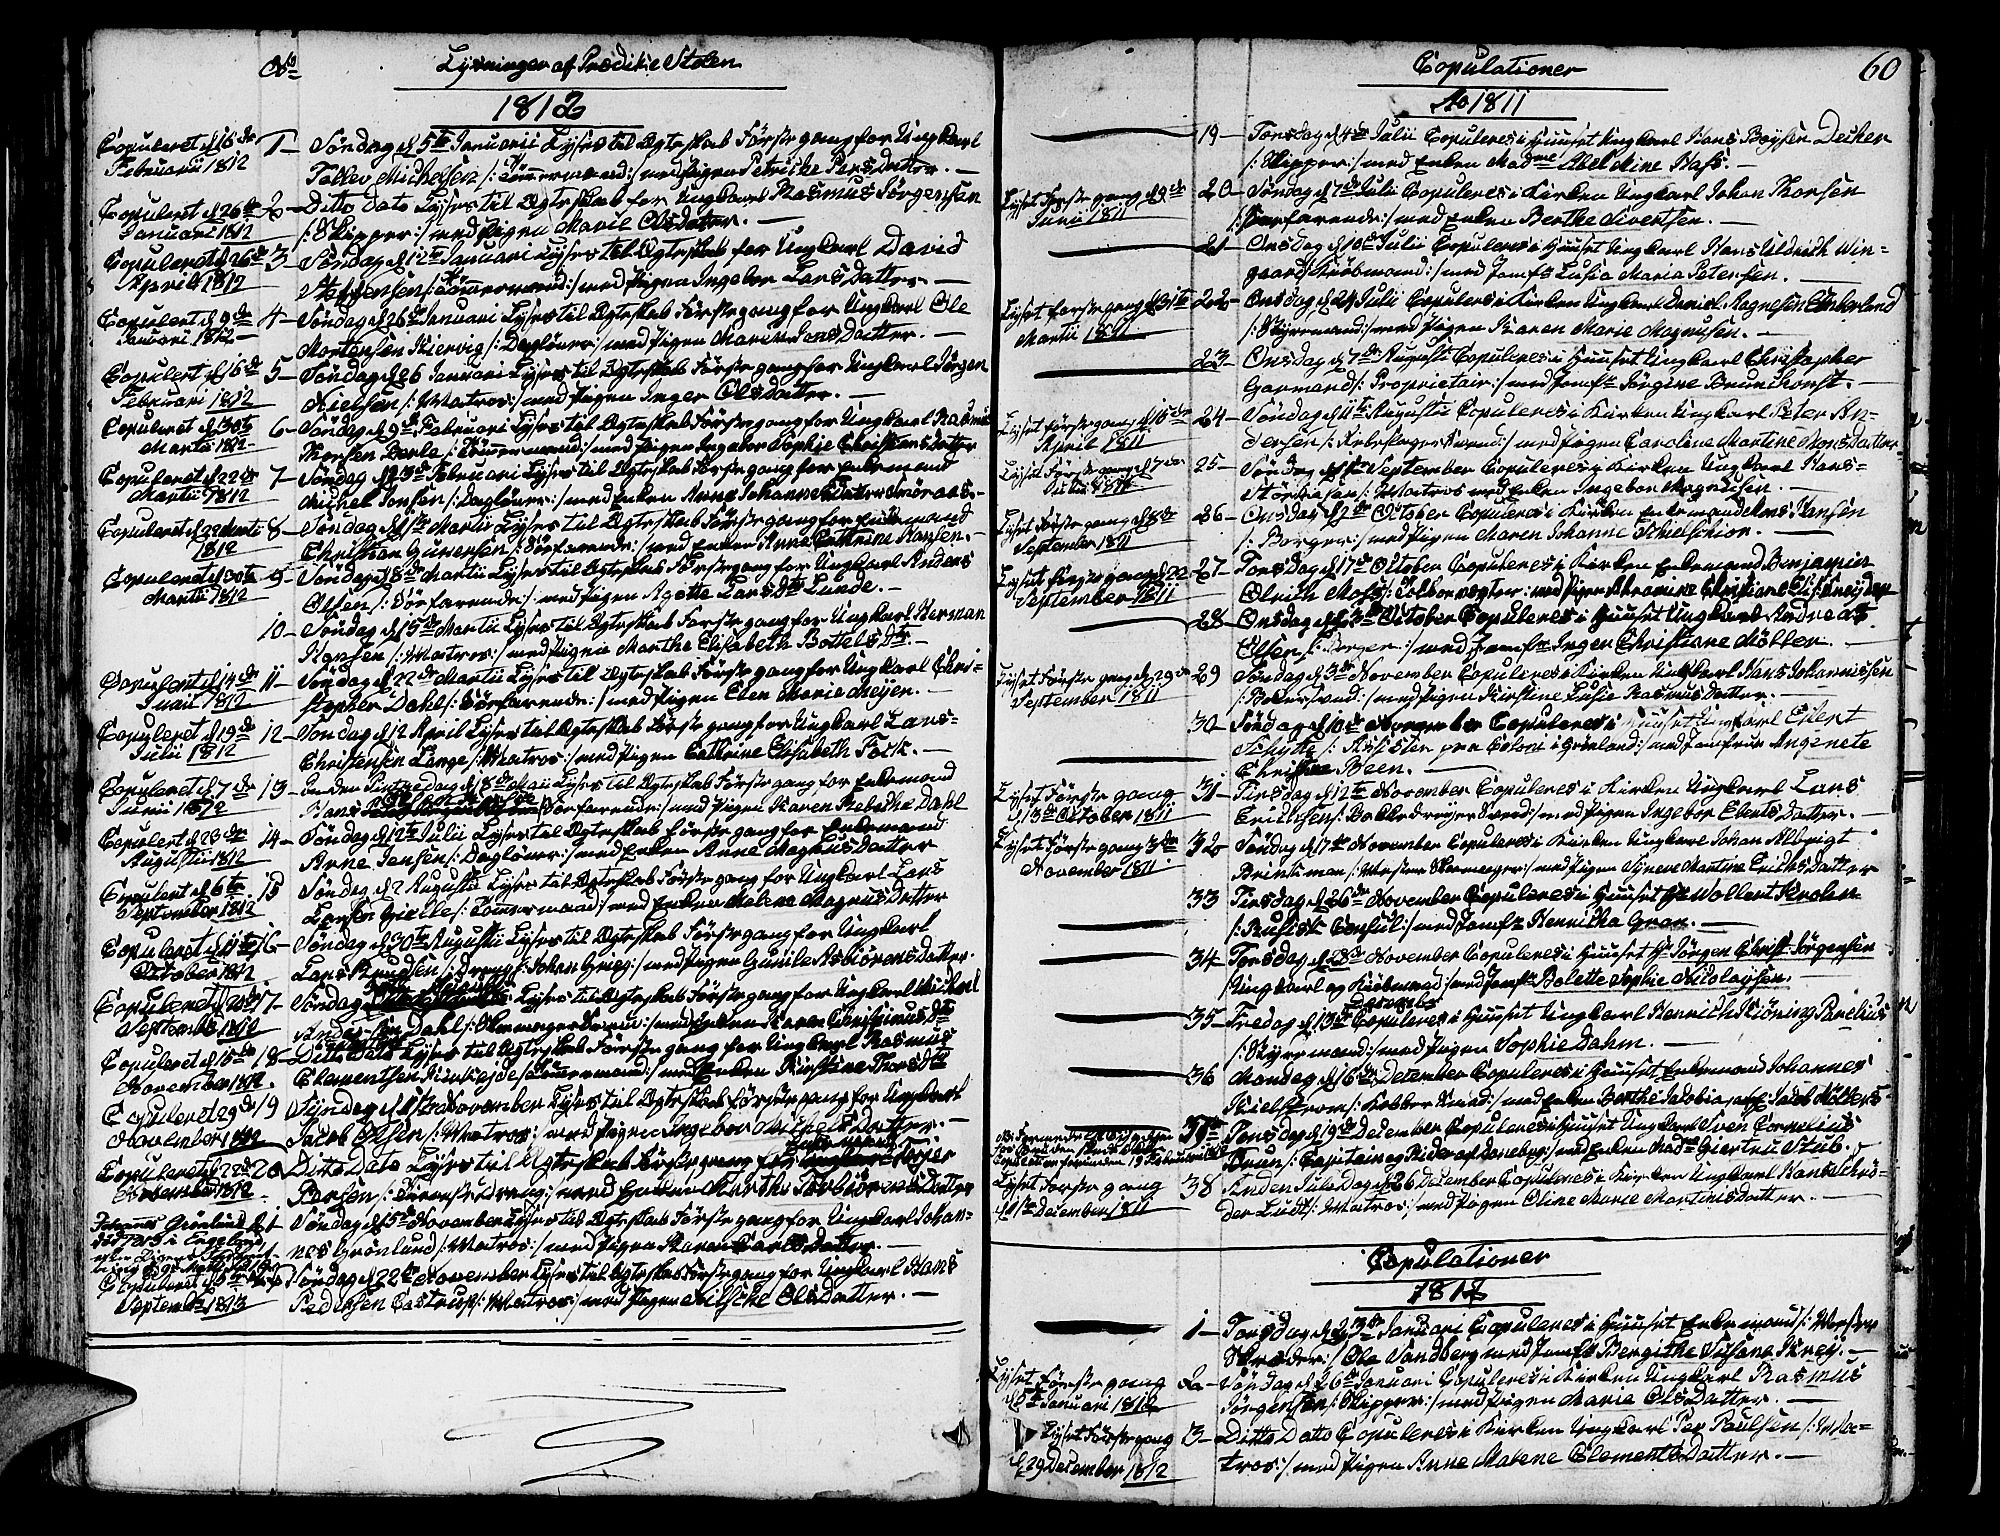 No Lysninger af Prædike Stolen
1812
Copuleret d 16de Februarii 1812
1 - Søndag d 5te Januarii Lyses til Ægteskab Første gang for Ungkarl
Tollev Michelsen /: Tømmermand :/ med Pigen Petricke Persdatter. -
Copuleret d 26de Januari 1812
2 - Ditto Dato Lyses til Ægteskab for Ungkarl Rasmus Jørgensen
/: Skipper :/ med Pigen Marie Olsdatter. -
Copuleret d 26de April 1812
3 - Søndag d 12te Januari Lyses til Ægteskab for Ungkarl David
Steffensen /: Tømmermand :/ med Pigen Ingebor Larsdatter. -
Copuleret d 9de Januari 1812
4 - Søndag d 26de Januari Lyses til Ægteskab Første gang for Ungkarl Ole
Mortensen Kiervig /: Dagløner :/ med Pigen Marthe Jansdatter. -
Copuleret d 16de Februari 1812
5 - Søndag d 26 Januari Lyses til Ægteskab Første gang for Ungkarl Jørgen
Nielsen /: Matros :/ med Pigen Inger Olsdatter. -
Copuleret d 30te Martii 1812
6 - Søndag d 9de Februari Lyses til Ægteskab Første gang for Ungkarl Rasmus
Thorsen Berla /: Tømmermand :/ med Pigen Ingebor Sophie Christensdatter
Copuleret d 22de Martii 1812
7 - Søndag d Februarii Lyses til Ægteskab Første gang for Enkemand
Michel Jonsen /: Dagløner :/ med Enken Anne Johanne
Copuleret d 22 Martii 1812
8 - Søndag d 1ste Martii Lyses til Ægteskab Første gang for Enkemand
Christian /: Søefarende :/ med Enken Anne Cathrine Hansen. -
Copuleret d 30te Martii 1812
9 - Søndag d 8de Martii Lyses til Ægteskab Første gang for Ungkarl Anders
Olsen /: Søefarende :/ med Pigen Agotte Larsdtr Lunde. -
10 - Søndag d 15de Martii Lyses til Ægteskab Første gang for Ungkarl Herman
Hansen /: Matros :/ med Pigen Marthe Elisabeth Bottelsdtr. -
Copuleret d 14de Juni 1812
11 - Søndag d 22de Martii Lyses til Ægteskab Første gang for Ungkarl Chri-
stopher Dahl /: Søefarende :/ med Pigen Elen Marie Meyer. -
Copuleret d 19de Julii 1812
12 - Søndag d 12 April Lyses til Ægteskab Første gang for Ungkarl Lars-
Christensen Lange /: Matros :/ med Pigen Cathrine Elisabeth Falk. -
Copuleret d 7de Junii 1812
13 - Anden Pintzedag d 18de Maii Lyses til Ægteskab Første gang for Enkemand
Hans /: Søefarende :/ med Pigen Karen Rebekka Dahl
Copuleret d 23de Augusti 1812
14 - Søndag d 12te Julii Lyses til Ægteskab første gang for Enkemand
Arne Jansen /: Dagløner :/ med Enken Anne Magnusdatter
Copuleret d 6te September 1812
15 Søndag d 2 Augustii Lyses til Ægteskab Første gang for Ungkarl Lars
Larsen Gielle /: Tømmermand :/ med Enken Malene Magnusdatter
Copuleret d 11te October 1812
16 - Søndag d 30te Augustii Lyses til Ægteskab Første gang for Ungkarl
Lars Knudsen /: Dreng Johan Grieg :/ med Pigen Gunile Asbiørensdatter.
Copuleret d 20de September 1812
17 - Søndag Lyses til Ægteskab Første gang for Ungkarl Michel
Andersen Dahl /: Skomager Svend :/ med Enken Karen Christiansdtr
Copuleret d 15de November 1812.
18 - Ditto Dato Lyses til Ægteskab Første gang for Ungkarl Rasmus
Clementsen /: Tømmermand :/ med Enken Kirstine Thorsdtr
Copuleret 29de November 1812
19 Søndag d 1ste November Lyses til Ægteskab Første gang for Ungkarl
Jacob Olsen /: Matros :/ med Pigen Ingebor Michelsdatter. -
Copuleret d 22de November 1812.
20 Ditto Dato Lyses til Ægteskab Første gang for Torjer
Persen /: Dreng :/ med Enken Marthe Torbiørnsdatter
Johannes Grønlund
død 1813 i Engeland
Søndag d 15de November Lyses til Ægteskab Første gang for Ungkarl Johan-
nes Grønlund /: Matros :/ med Pigen Karen Larsdatter. -
Copuleret d September 1813
Søndag d 22de November Lyses til Ægteskab Første gang for Ungkarl Hans
Pedersen Castrup /: Matros :/ med Pigen Olsdatter. -
Copulationer 60
Ao 1811
19 - Torsdag d 4de Julii Copuleres i Huuset Ungkarl Hans Boysen Decker
/: Skipper :/ med Enken Madme Abel Mine Hass. -
Lyset Første gang d 9de Junii 1811
20 - Søndag d 7de Julii Copuleres i Kirken Ungkarl Johan Thorsen
/: Søefarende :/ med Enken Berthe Sivertsen. -
21 - Onsdag d 10de Julii Copuleres i Huuset Ungkarl Hans Uldrich Win-
gaard /: Kiøbmand :/ med Jomfr Lusia Maria Petersen. -
Lyset første gang d 31te Martii 1811
22 - Onsdag d 24 Julii Copuleres i Kirken Ungkarl Daniel Magnesen Cinberland
/: Styrmand :/ med Pigen Karen Marie Magnusen. -
23 - Onsdag d 7de Augusti Copuleres i Huuset Ungkarl Christopher
Garmand /: Proprietair :/ med Jomfr Jørgine Brunckhorst. -
Lyset første gang d 15de April 1811
24 - Søndag d 11te Augusti Copuleres i Kirken Ungkarl Peter An-
dersen /: Rebslager Svend :/ med Pigen Caroline Martine Monsdatter
Lyset Første gang d 7de Julii 1811
25 - Søndag d 1ste September Copuleres i Kirken Ungkarl Hans-
Størkersen /: Matros med Enken Ingebor Magnusen. -
Lyset Første gang d 8de September 1811
26 - Onsdag d 2de October Copuleres i Kirken Enkemand Hansen
/: Borger :/ med Pigen Maren Johanne Schielschior. -
Lyset første gang d 22 September 1811
27 - Torsdag d 17de October Copuleres i Kirken Enkemand Benjamin
Olrich Moss /: Toldbervagter :/ med Pigen
28 - Onsdag d 23de October Copuleres i Huuset Ungkarl Andreas
Olsen /: Borger :/ med Jomfr Inger Christiane Møller. -
Lyset Første gang d 29de September 1811
29 Søndag d 3de November Copuleres i Kirken Ungkarl Hans Johannissen
/: Bager Svend :/ med Pigen Kirstine Lusie Rasmusdatter. -
30 - Søndag d 10de November Copuleres i Huuset Ungkarl Eilert
Schytte /: Assistent paa Coloni i Grønland :/ med Jomfrue Angenete
Christine Been. -
Lyset Første gang d 13de October 1811
31 - Tirsdag d 12te November Copuleres i Kirken Ungkarl Lars
Erichsen /: Blokkedreyer Svend :/ med Pigen Ingebor Ebertsdatter. -
Lyset Første gang 3de November 1811
32 Søndag d 17de November Copuleres i Kirken Ungkarl Johan Albrigt
Brinkman /: Mester Skomager :/ med Pigen Syneve Martine Erichsdatter
33 Tirsdag d 26de November Copuleres i Huuset Hr Wollert Krohn
/: Rusisk Consul :/ med Jomfr Henricka Gran. -
34 - Torsdag d 28de November Copuleres i Huuset Hr Jørgen Christ: Jørgensen
/: Ungkarl og Kiøbmand :/ med Jomfr Bolette Sophie Nicolaysen.
35 - Fredag d 13de December Copuleres i Huuset Ungkarl Henrich Kiøning Parelius
/: Styrmand :/ med Pigen Sophie Dahm. -
36 Mandag d 16de December Copuleres i Huuset Enkemand Johannes
Kielstrom /: Kobber Smed :/ med Enken Berthe Jacobia Jacob Møllers
37 Torsdag d 19de December Copuleres i Huuset Ungkarl Sven Cornelius
Bruun /: Capitain og Rider af Daneborg :/ med Enken Madm Giertru Stub.
Lyset Første gang d 1ste December 1811
38 - Anden Juledag d 26 December Copuleres i Kirken Ungkarl
der Ludt /: Matros :/ med Pigen Oline Marie Martinisdatter. -
Copulationer
1812
1 - Torsdag d 23de Januari Copuleres i Huuset Enkemand /: Mester
Skræder :/ Ole Sandberg med Jomfr Bergithe Susane Krey. -
Lyset Første gang d 5te Januari 1812
2 - Søndag d 26de Januari Copuleres i Kirken Ungkarl Rasmus
Jørgensen /: Skipper :/ med Pigen Marie Olsdatter. -
Lyset Første gang d 29 December 1812
3 - Ditto Dato Copuleres i Kirken Ungkarl Per Paulsen /: Ma-
tros :/ med Pigen Anne Malene Clementsdatter. -